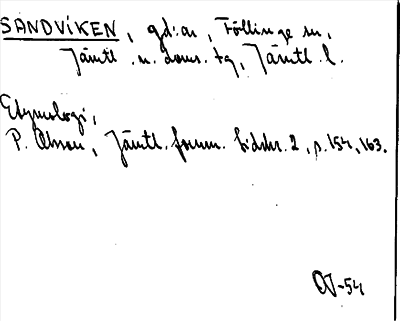 SANDVIKEN, gd:ar, Föllinge sn,
Jämtl. n. doms. tg, Jämtl. l.
Etymologi,
P. Olsson, Jämtl. fornm. tidskr. 2, p. 154, 163.
OJ-54